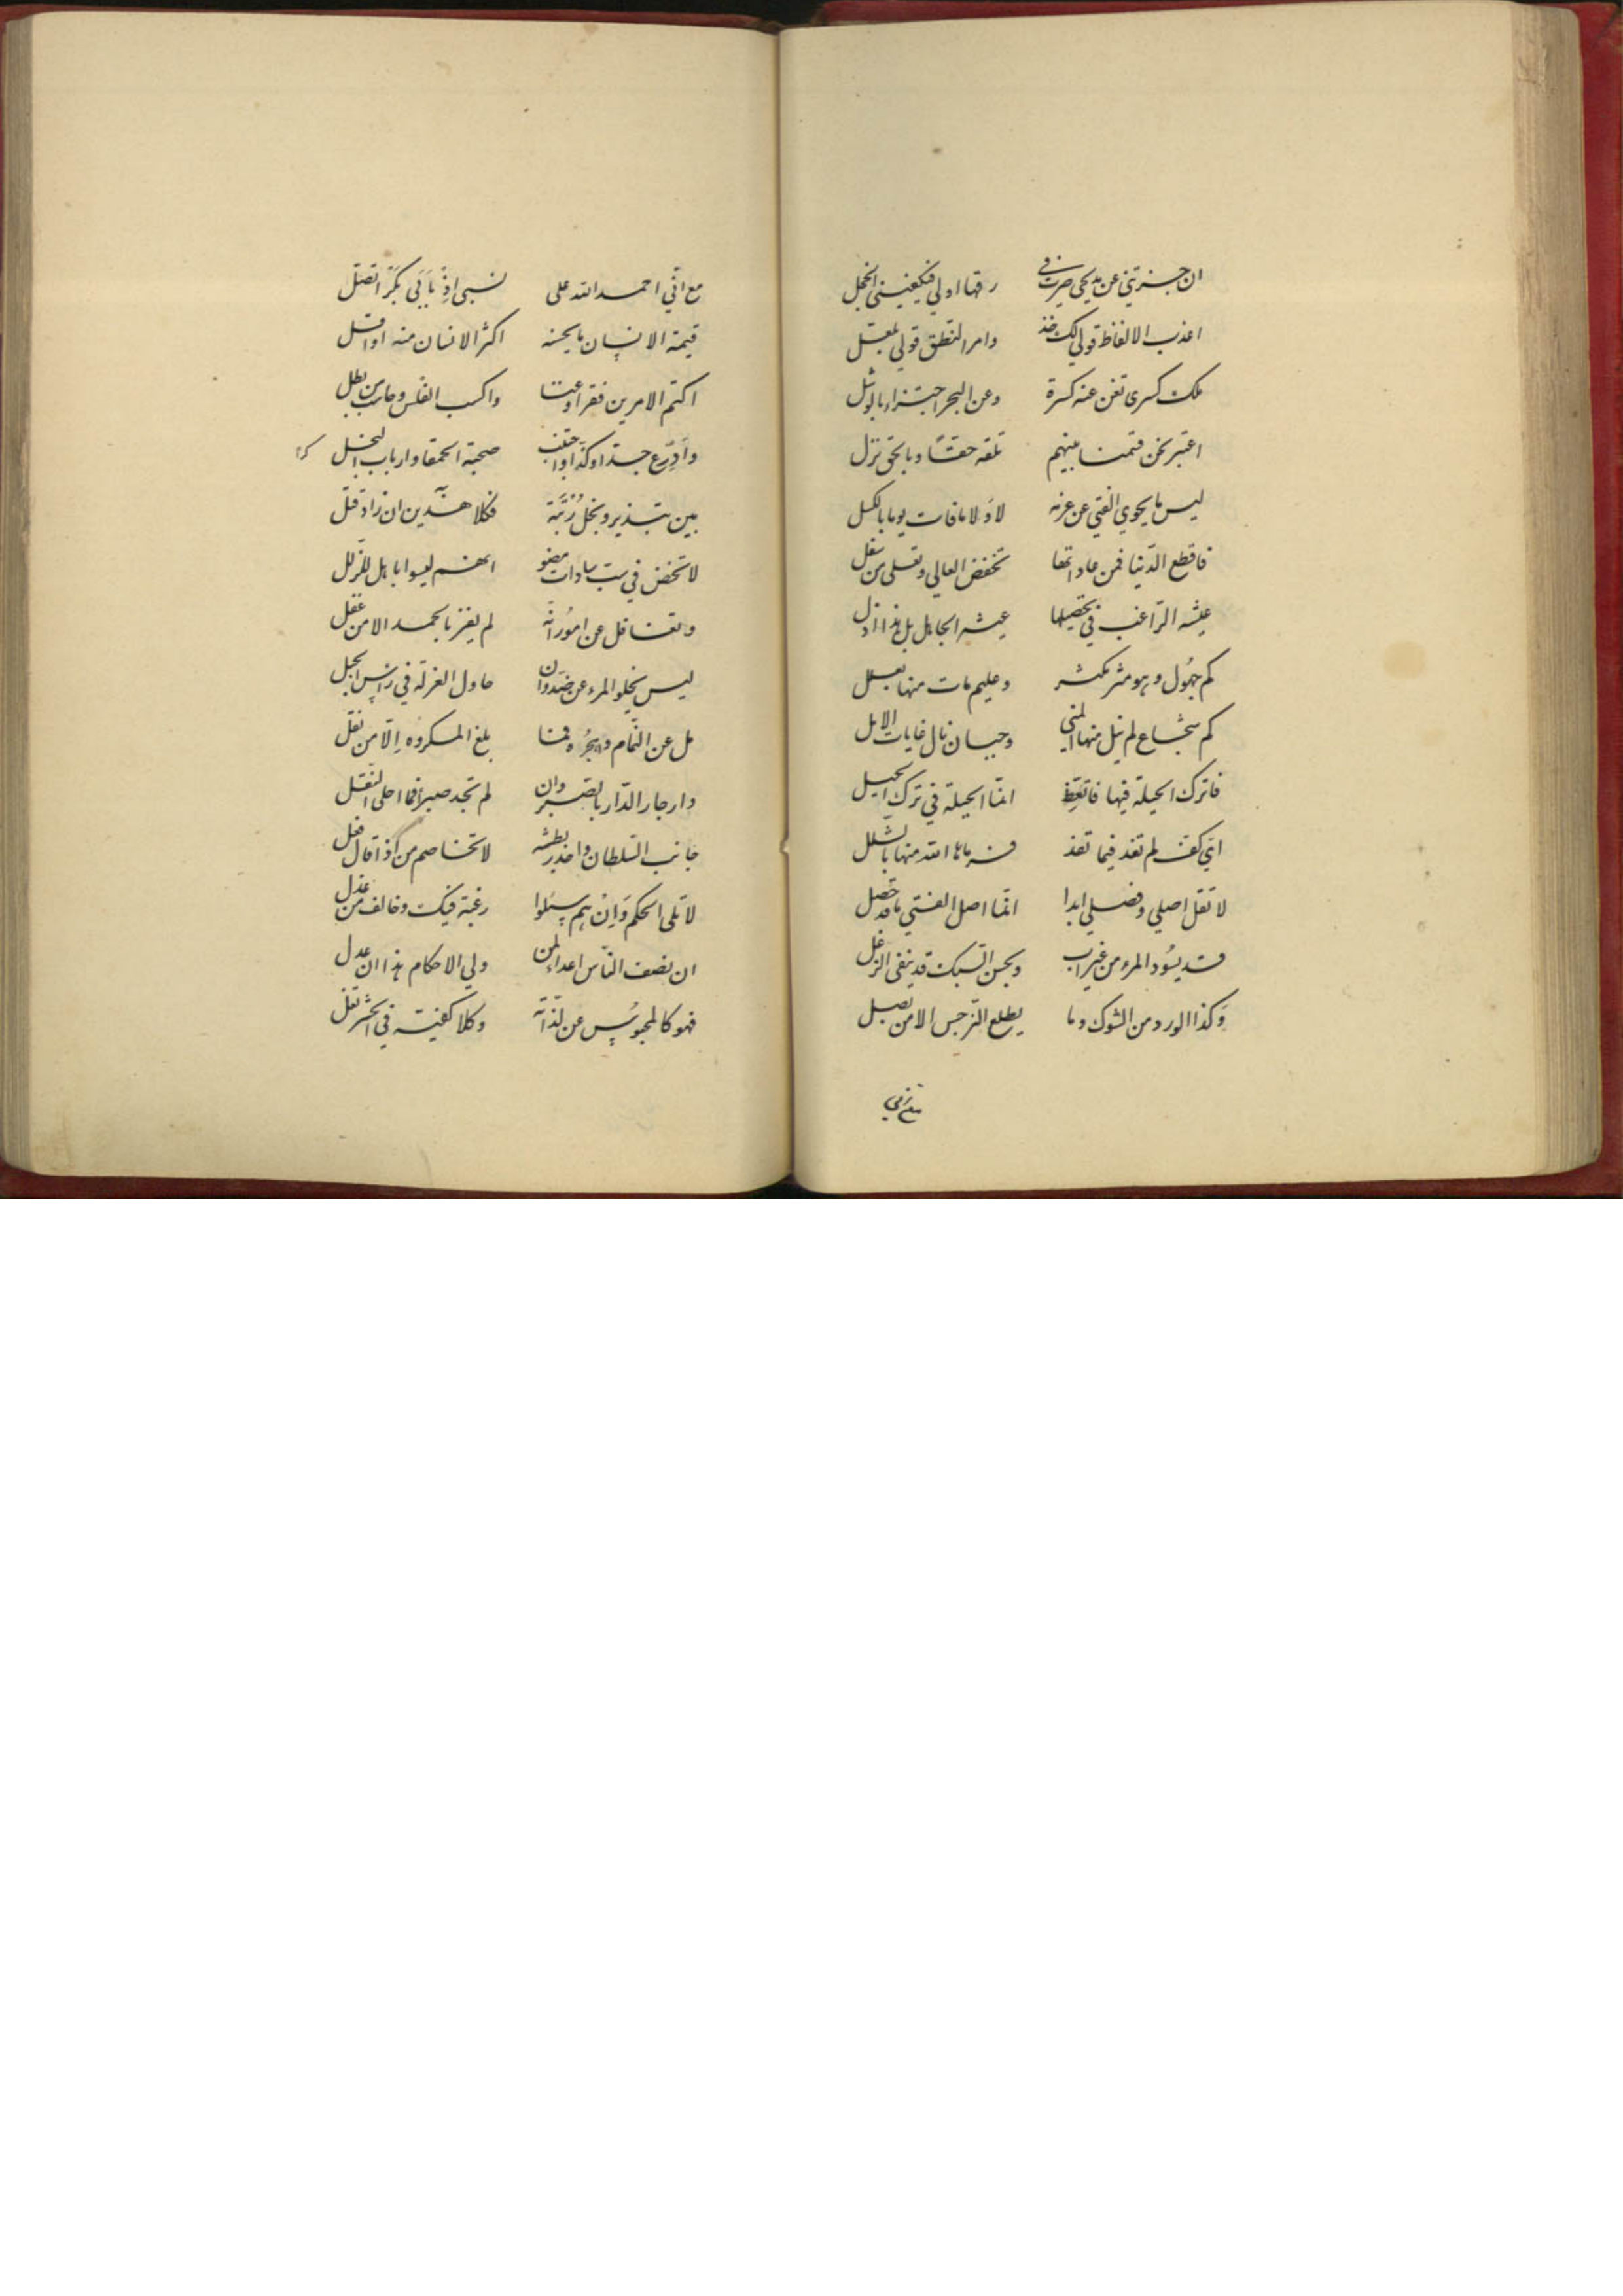 ان جزتني عن مديحي صرت في رقها اولي فيكفيني الخجل
اعذب الالفاظ قولي لك خذ وامر النطق قولي لعل
ملك كسرى تغن عنه كسرة وعن البحر اجتزاء بالوشل
اعتبر نحن قسمنا بينهم تلقه حقا وبالحق نزل
ليس ما يحوي الفتى عن عزمه لا ولا ما فات يوما بالكسل
فاقطع الدنيا فمن عاداتها تخفض العالي وتعلى من سفل
عيشه الراغب في تحصيلها عيشه الجاهل بل هذا اذل
كم جهول وهو مثر مكثر وعليم مات منها بعلل
كم شجاع لم ينل منها المنى وجبان نال غايات الامل
فاترك الحيلة فيها فاتعظ انما الحيلة في ترك الحيل
اي كف لم تفد فيما تفد فرماها الله منها بالشلل
لا تقل اصلي وفصلي ابدا انما اصل الفتى ما قد حصل
قد يسود المرء من غير اب وبحسن السبك قد ينفى الزغل
وكذا الورد من الشوك وما يطلع النرجس الا من بصل
مع اني
مع اني احمد الله على نسبي اذ بابي بكر اتصل
قيمة الانسان ما يحسنه اكثر الانسان منه او اقل
اكتم الامرين فقرا وغنا واكسب الفلس وحاسب من بطل
وادرع جدا وكدا واجتنب صحبة الحمقا وارباب البخل
بين تبذير وبخل رتبة فكلا هذين ان زاد قتل
لا تخض في سب سادات مضو انهم ليسوا باهل للزلل
وتغافل عن امور انه لم يفز بالحمد الا من غفل
ليس يخلو المرء عن ضد وان حاول العزلة في راس الجبل
مل عن النمام واهجره فما بلغ المكروه الا من نقل
دار جار الدار بالصبر وان لم تجد صبرا فما احلى النقل
جانب السلطان واحذر بطشه لا تخاصم من اذا قال فعل
لا تلى الحكم وان هم سئلوا رغبة فيك وخالف من عذل
ان نصف الناس اعداء لمن ولي الاحكام هذا ان عدل
فهو كالمحبوس عن لذاته وكلا كفيه في الحشر تغل